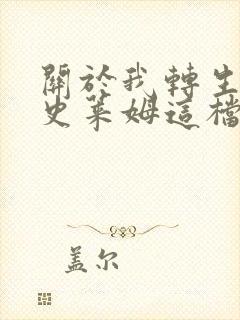 關於我轉生
史莱姆這檔
盖尔